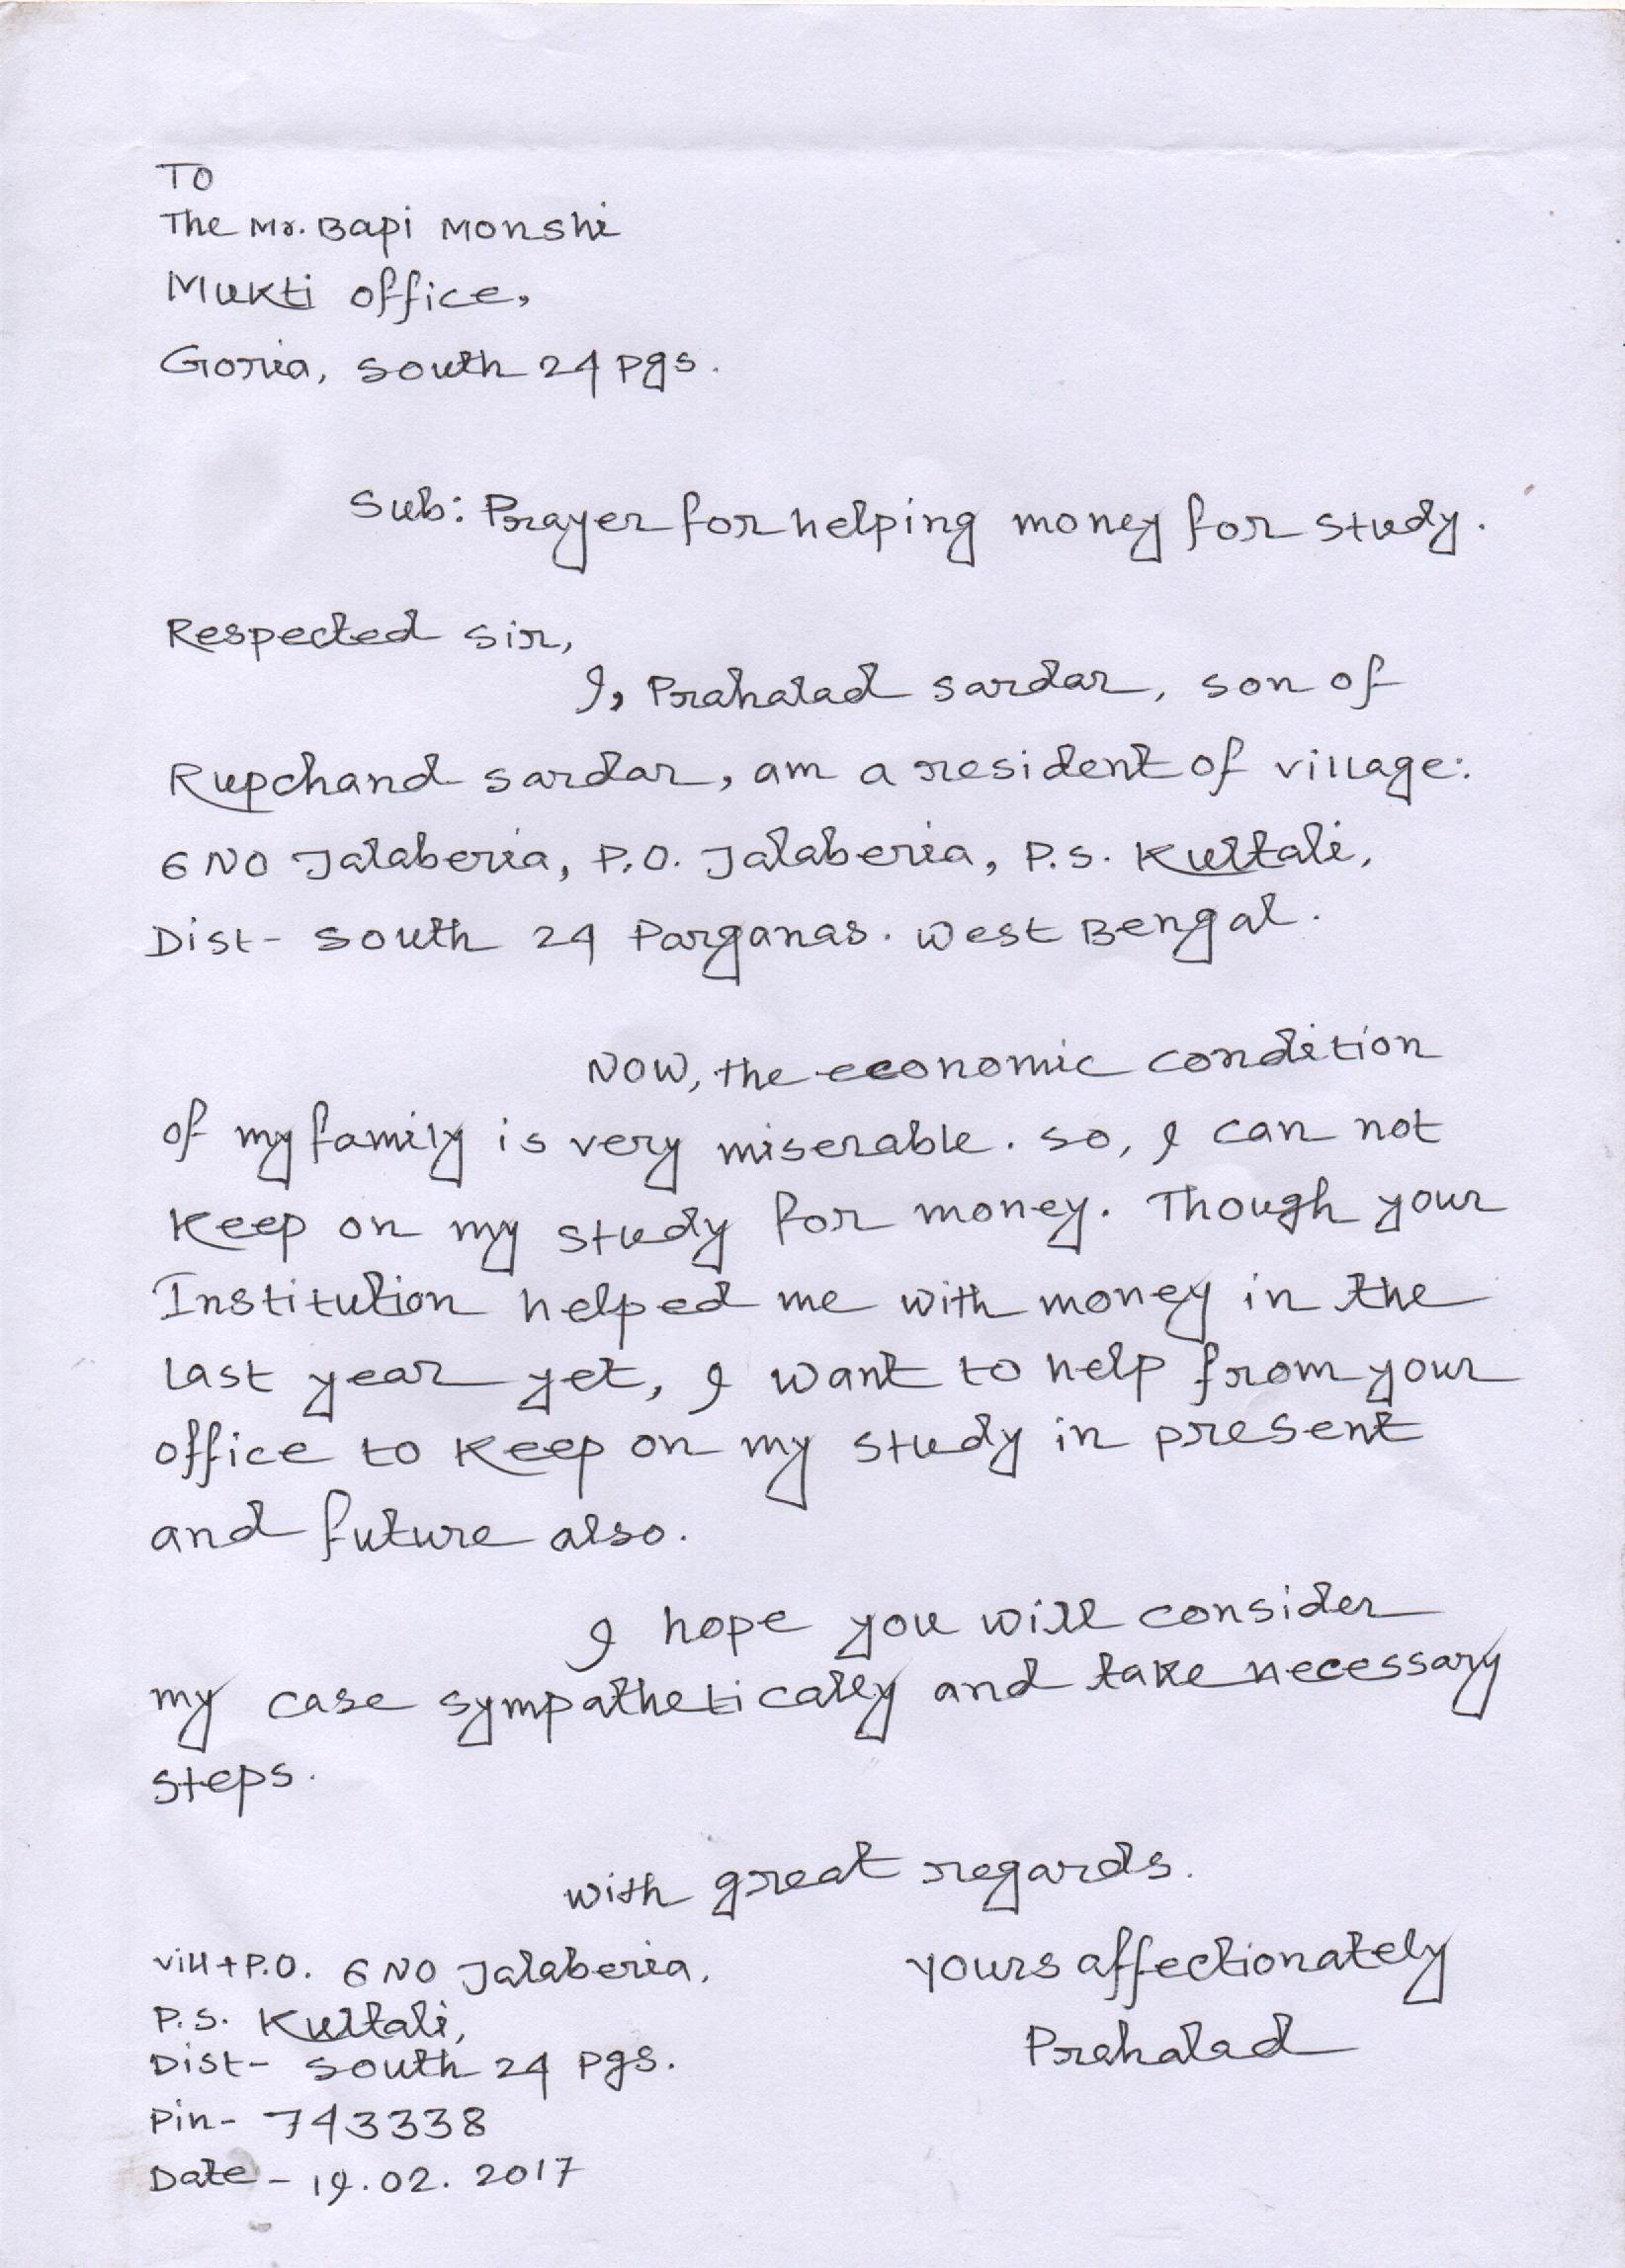 TO
The Mr. Bapi Monshi
Mukti office,
Goria, South 24 pgs.
Sub: Prayer for helping money for study.
Respected Sir,
I, Prahalad Sardar, son of
Rupchand Sardar, am a resident of village:
6 NO Jalaberia, P.O. Jalaberia, P.S. Kultali,
Dist- South 24 Parganas. West Bengal.
NOW, the economic condition
of my family is very miserable. So, I can not
Keep on my study for money. Though your
Institution helped me with money in the
last year yet, I want to help from your
office to Keep on my study in present
and future also.
I hope you will consider
my case sympathetically and take necessary
steps.
with great regards.
Vill+P.O. 6 NO Jalaberia,
P.S. Kultali,
Dist- South 24 pgs.
Pin- 743338
Date- 19.02.2017
Yours affectionately
Prahalad